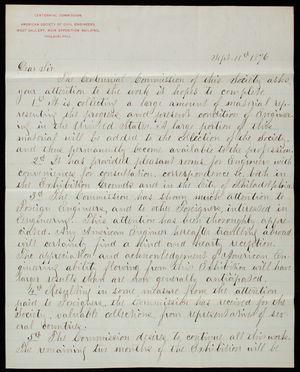 CENTENNIAL COMMISSION
AMERICAN SOCIETY OF CIVIL ENGINEERS,
WEST GALLERY, MAIN EXPOSITION BUILDING,
PHILADELPHIA.
Sept. 11th 1876
Dear Sir
The Centennial Commission of this Society asks
your attention to the work it hopes to complete.
1st It is collecting a large amount of material repre-
senting the progress and present condition of Engineer-
ing in the United States. A large portion of this
material will be added to the collection of the Society,
and thus permanently become available to the profession.
2d It has provided pleasant rooms for Engineers with
conveniences for consultation, correspondence &c. both in
the Exhibition Grounds and in the City of Philadelphia.
3d The Commission has shown much attention to
Foreign Engineers, and to other Foreigners, interested in
Engineering. This attention has been thoroughly appre-
ciated. Any American Engineer hereafter travelling abroad
will certainly find a kind and hearty reception.
The appreciation and acknowledgement of American En-
gineering ability, flowing from this Exhibition will have
larger results than are now generally anticipated.
4th Resulting in some measure from the attention
paid to Foreigners, the Commission has received for the
Society, valuable collections, from representatives of sev-
eral countries.
5th The Commission desires to continue all this work.
The remaining two months of the Exhibition will be